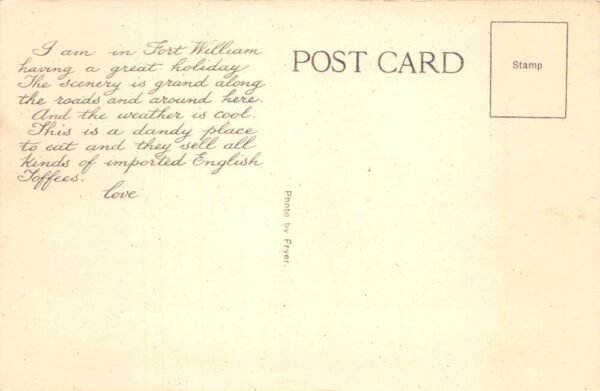 I am in Fort William
having a great holiday
The scenery is grand along
the roads and around here.
And the weather is cool.
This is a dandy place
to eat and they sell all
kinds of imported English
Toffees.
love
POST CARD
Stamp
Photo by Fryer.